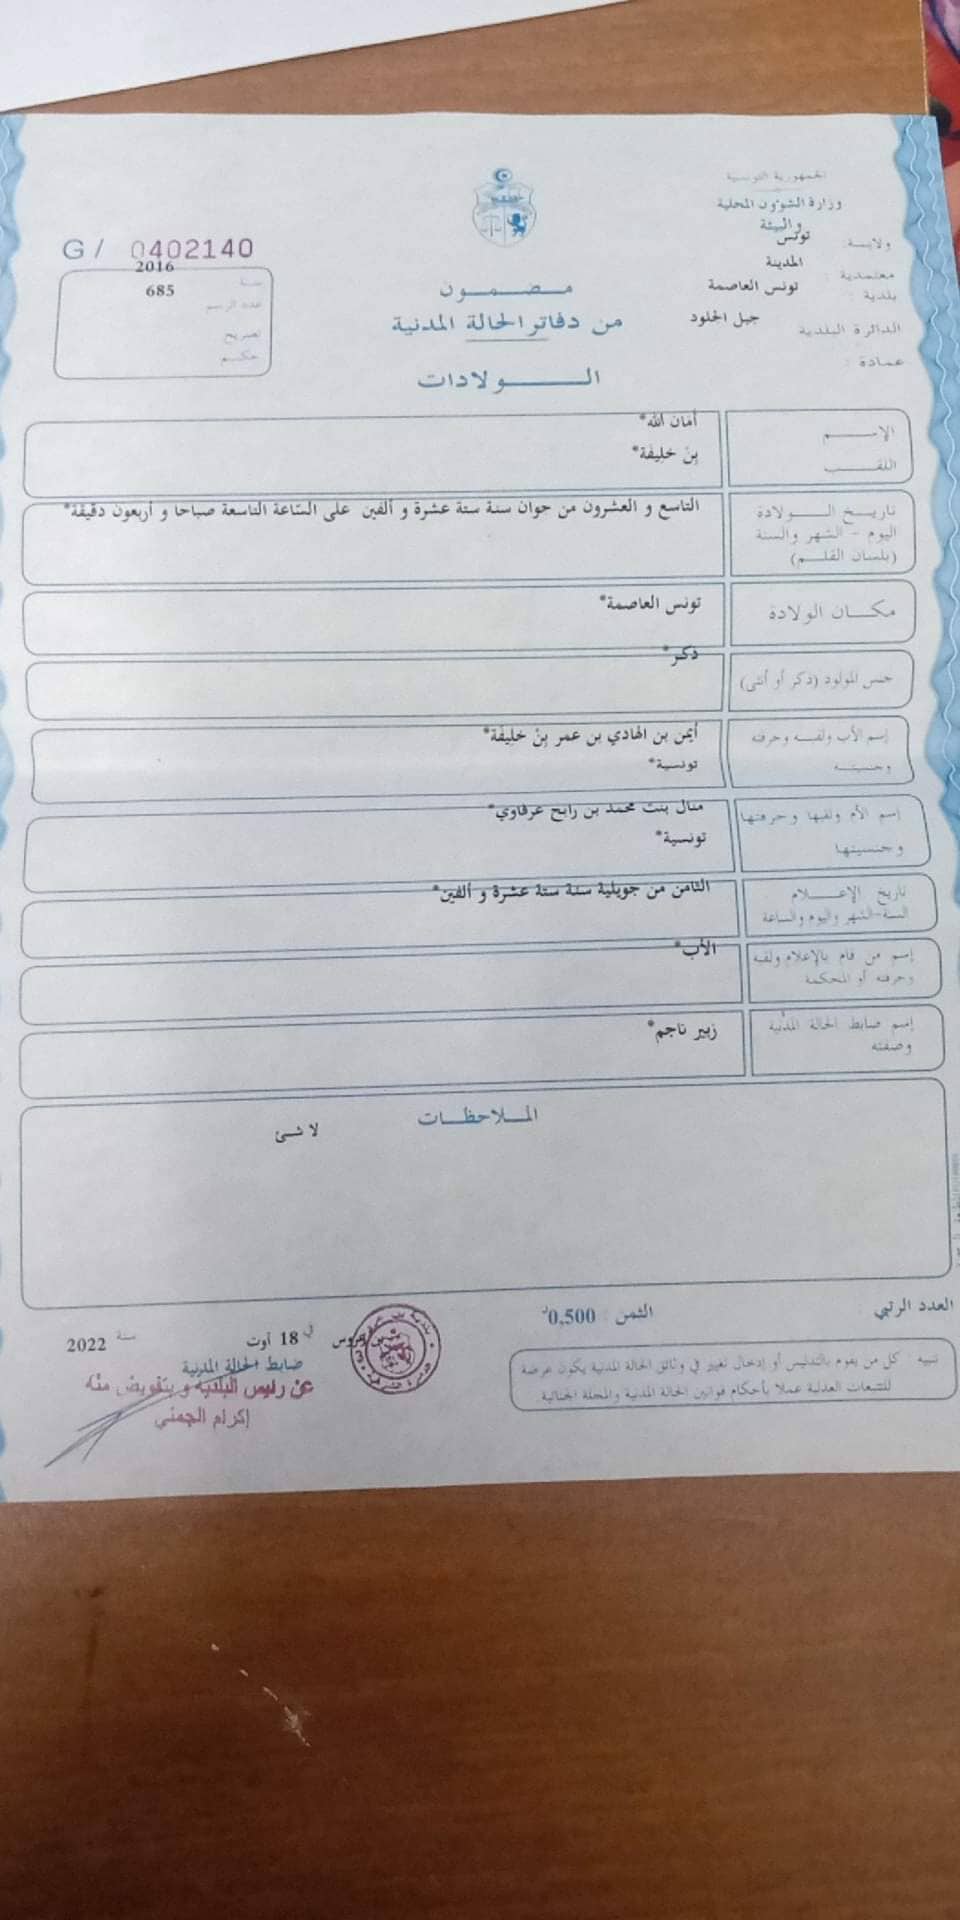 الجمهورية التونسية
وزارة الشؤون المحلية
والبيئة
ولايـة: تونس
معتمدية : المدينة
بلدية : تونس العاصمة
الدائرة البلدية جبل الجلود
عمادة :
G / 0402140
سنة 2016
عدد الرسم 685
تصريح
حكم
مضمون
من دفاتر الحالة المدنية
الولادات
الإسم أمان الله*
اللقب بِنْ خَلِيفَة*
تاريخ الولادة التاسع و العشرون من جوان سنة ستة عشرة و ألفين على السّاعة التاسعة صباحا و أربعون دقيقة*
اليوم - الشهر والسنة
(بلسان القلم)
مكان الولادة تونس العاصمة*
جنس المولود (ذكر أو أنثى) ذكر*
إسم الأب ولقبه وحرفته أيمن بن الهادي بن عمر بِنْ خَلِيفَة*
وجنسيته تونسية*
إسم الأم ولقبها وحرفتها منال بنت محمد بن رابح عرفاوي*
وجنسيتها تونسية*
تاريخ الإعلام الثامن من جويلية سنة ستة عشرة و ألفين*
السنة-الشهر واليوم والساعة
إسم من قام بالإعلام ولقبه الأب*
وحرفته أو المحكمة
إسم ضابط الحالة المدنية زبير ناجم*
وصفته
الملاحظات
لا شئ
العدد الرتبي
الثمن : 0,500د
في 18 أوت سنة 2022
ضابط الحالة المدنية
عن رئيس البلدية و بتفويض منه
إكرام الجمني
تنبيه كل من يقوم بالتدليس أو إدخال تغيير في وثائق الحالة المدنية يكون عرضة
للتتبعات العدلية عملا بأحكام قوانين الحالة المدنية والمجلة الجنائية.